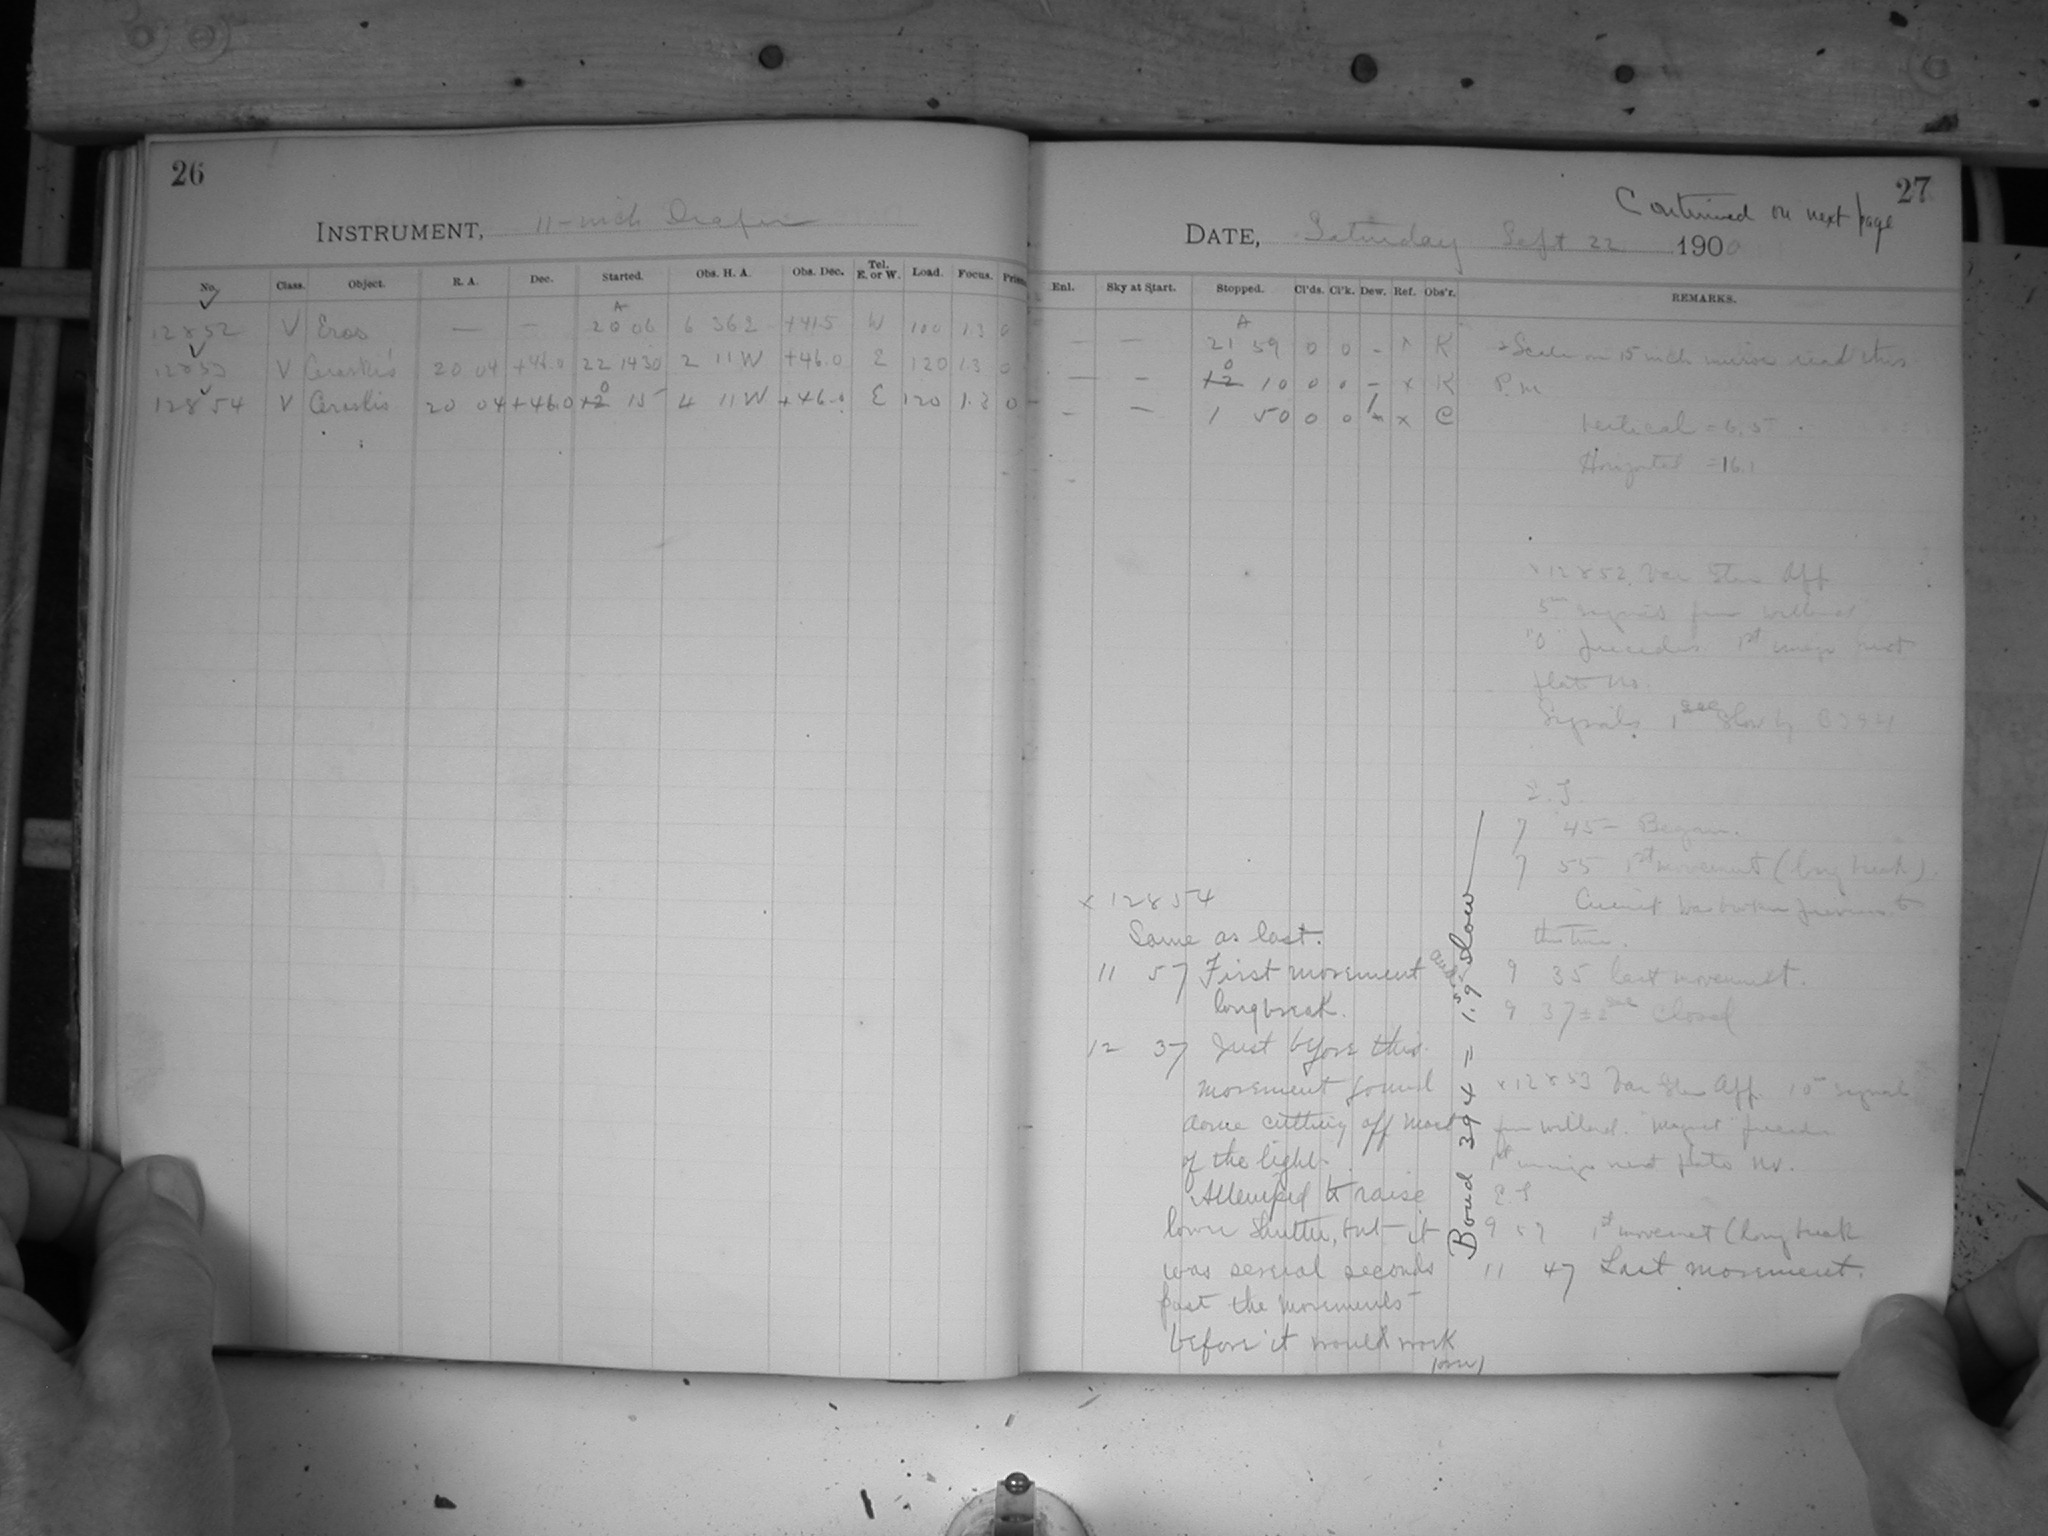 26
INSTRUMENT, 11-inch Draper
No. Class. Object. R. A. Dec. Started. Obs. H. A. Obs. Dec. Tel. E. or W. Load. Focus. Prism
12852 V Eros — — 20 06 6 36 +41.5 W 100 1.3 0
12853 V Ceraskis 20 04 +46.0 22 14 30 2 11 W +46.0 E 120 1.3 0
12854 V Ceraskis 20 04 +46.0 0 15 4 11 W +46.0 E 120 1.3 0
27
Continued on next page
DATE, Saturday Sept 22 1900
Enl. Sky at Start. Stopped. Cl'ds. Cl'k. Dew. Ref. Obs'r. REMARKS.
— — 21 59 0 0 - x K Scale on 15 inch mirror read this
— — 0 10 0 0 - x K P.M
— — 1 50 0 0 - x C Vertical = 6.5
Horizontal = 16.1
x 12852 Var Star App
5m signals from Willard
"0" precedes 1st image next
plate no.
Signals 1 sec slow by B394
E. T.
7 45 - Began.
7 55 1st movement (long break)
Current was broken previous to
this time.
9 35 last movement.
9 37 ± 2 sec Closed
x 12853 Var Star App. 10m signals
from Willard. precedes
1st image next plate no.
E T
9 57 1st movement (long break
11 47 Last movement.
x 12854
Same as last.
11 57 First movement
long break.
12 37 Just before this
movement found
dome cutting off most
of the light.
Attempted to raise
lower shutter, but it
was several seconds
past the movements
before it would work
(over)
Bond 394 = 1.9 slow